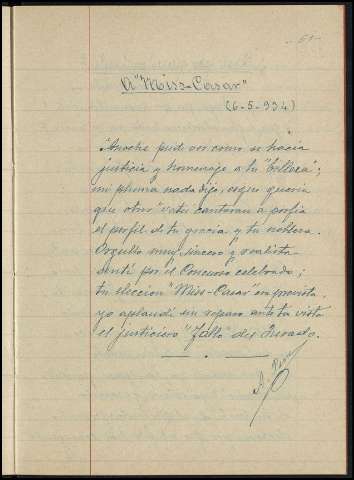 51-
A "Miss-Casar"
(6-5-934)
Anoche pude ver como se hacia
justicia y homenaje a tu "belleza";
mi pluma nada dijo, es que queria
que otros vates cantaran a porfia
el perfil de tu gracia y tu nobleza.
Orgullo muy sincero y realista
senti por el Concurso celebrado;
tu eleccion "Miss-Casar" imprevista,
yo aplaudi sin reparo ante tu vista
el justiciero "Fallo" del Jurado.